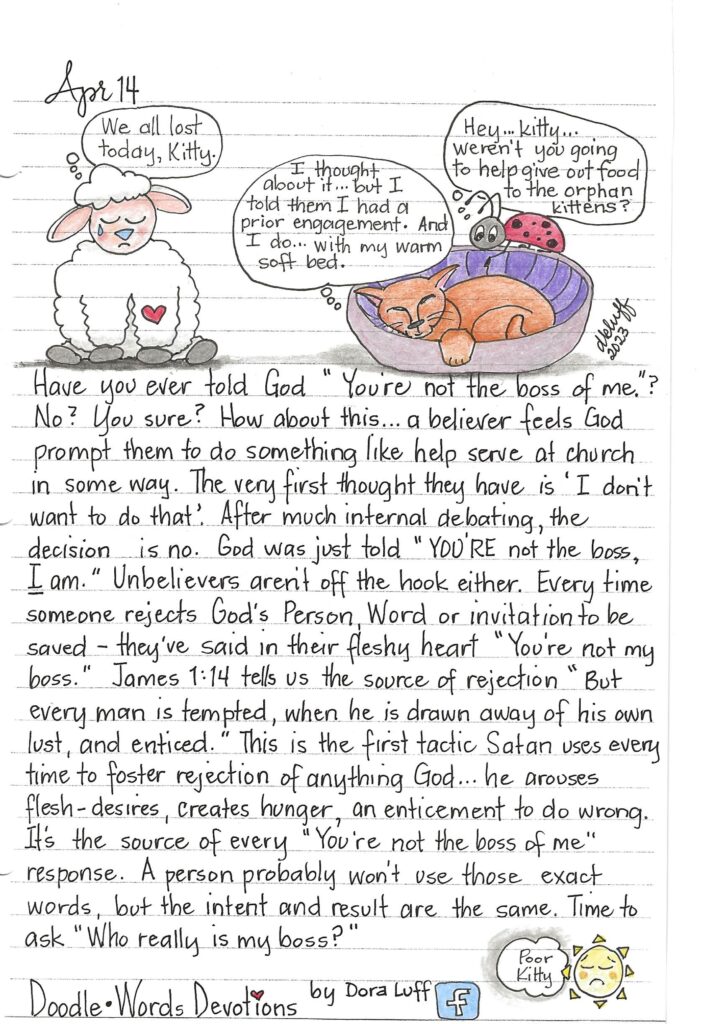 Apr 14
We all lost
today, Kitty.
Hey... kitty...
weren't you going
to help give out food
to the orphan
kittens?
I thought
about it... but I
told them I had a
prior engagement. And
I do... with my warm
soft bed.
dkluff
2023
Have you ever told God "You're not the boss of me."?
No? You sure? How about this... a believer feels God
prompt them to do something like help serve at church
in some way. The very first thought they have is 'I don't
want to do that'. After much internal debating, the
decision is no. God was just told "YOU'RE not the boss,
I am." Unbelievers aren't off the hook either. Every time
someone rejects God's Person, Word or invitation to be
saved - they've said in their fleshy heart "You're not my
boss." James 1:14 tells us the source of rejection "But
every man is tempted, when he is drawn away of his own
lust, and enticed." This is the first tactic Satan uses every
time to foster rejection of anything God... he arouses
flesh-desires, creates hunger, an enticement to do wrong.
It's the source of every "You're not the boss of me"
response. A person probably won't use those exact
words, but the intent and result are the same. Time to
ask "Who really is my boss?"
Poor
Kitty
Doodle•Words Devotions by Dora Luff f